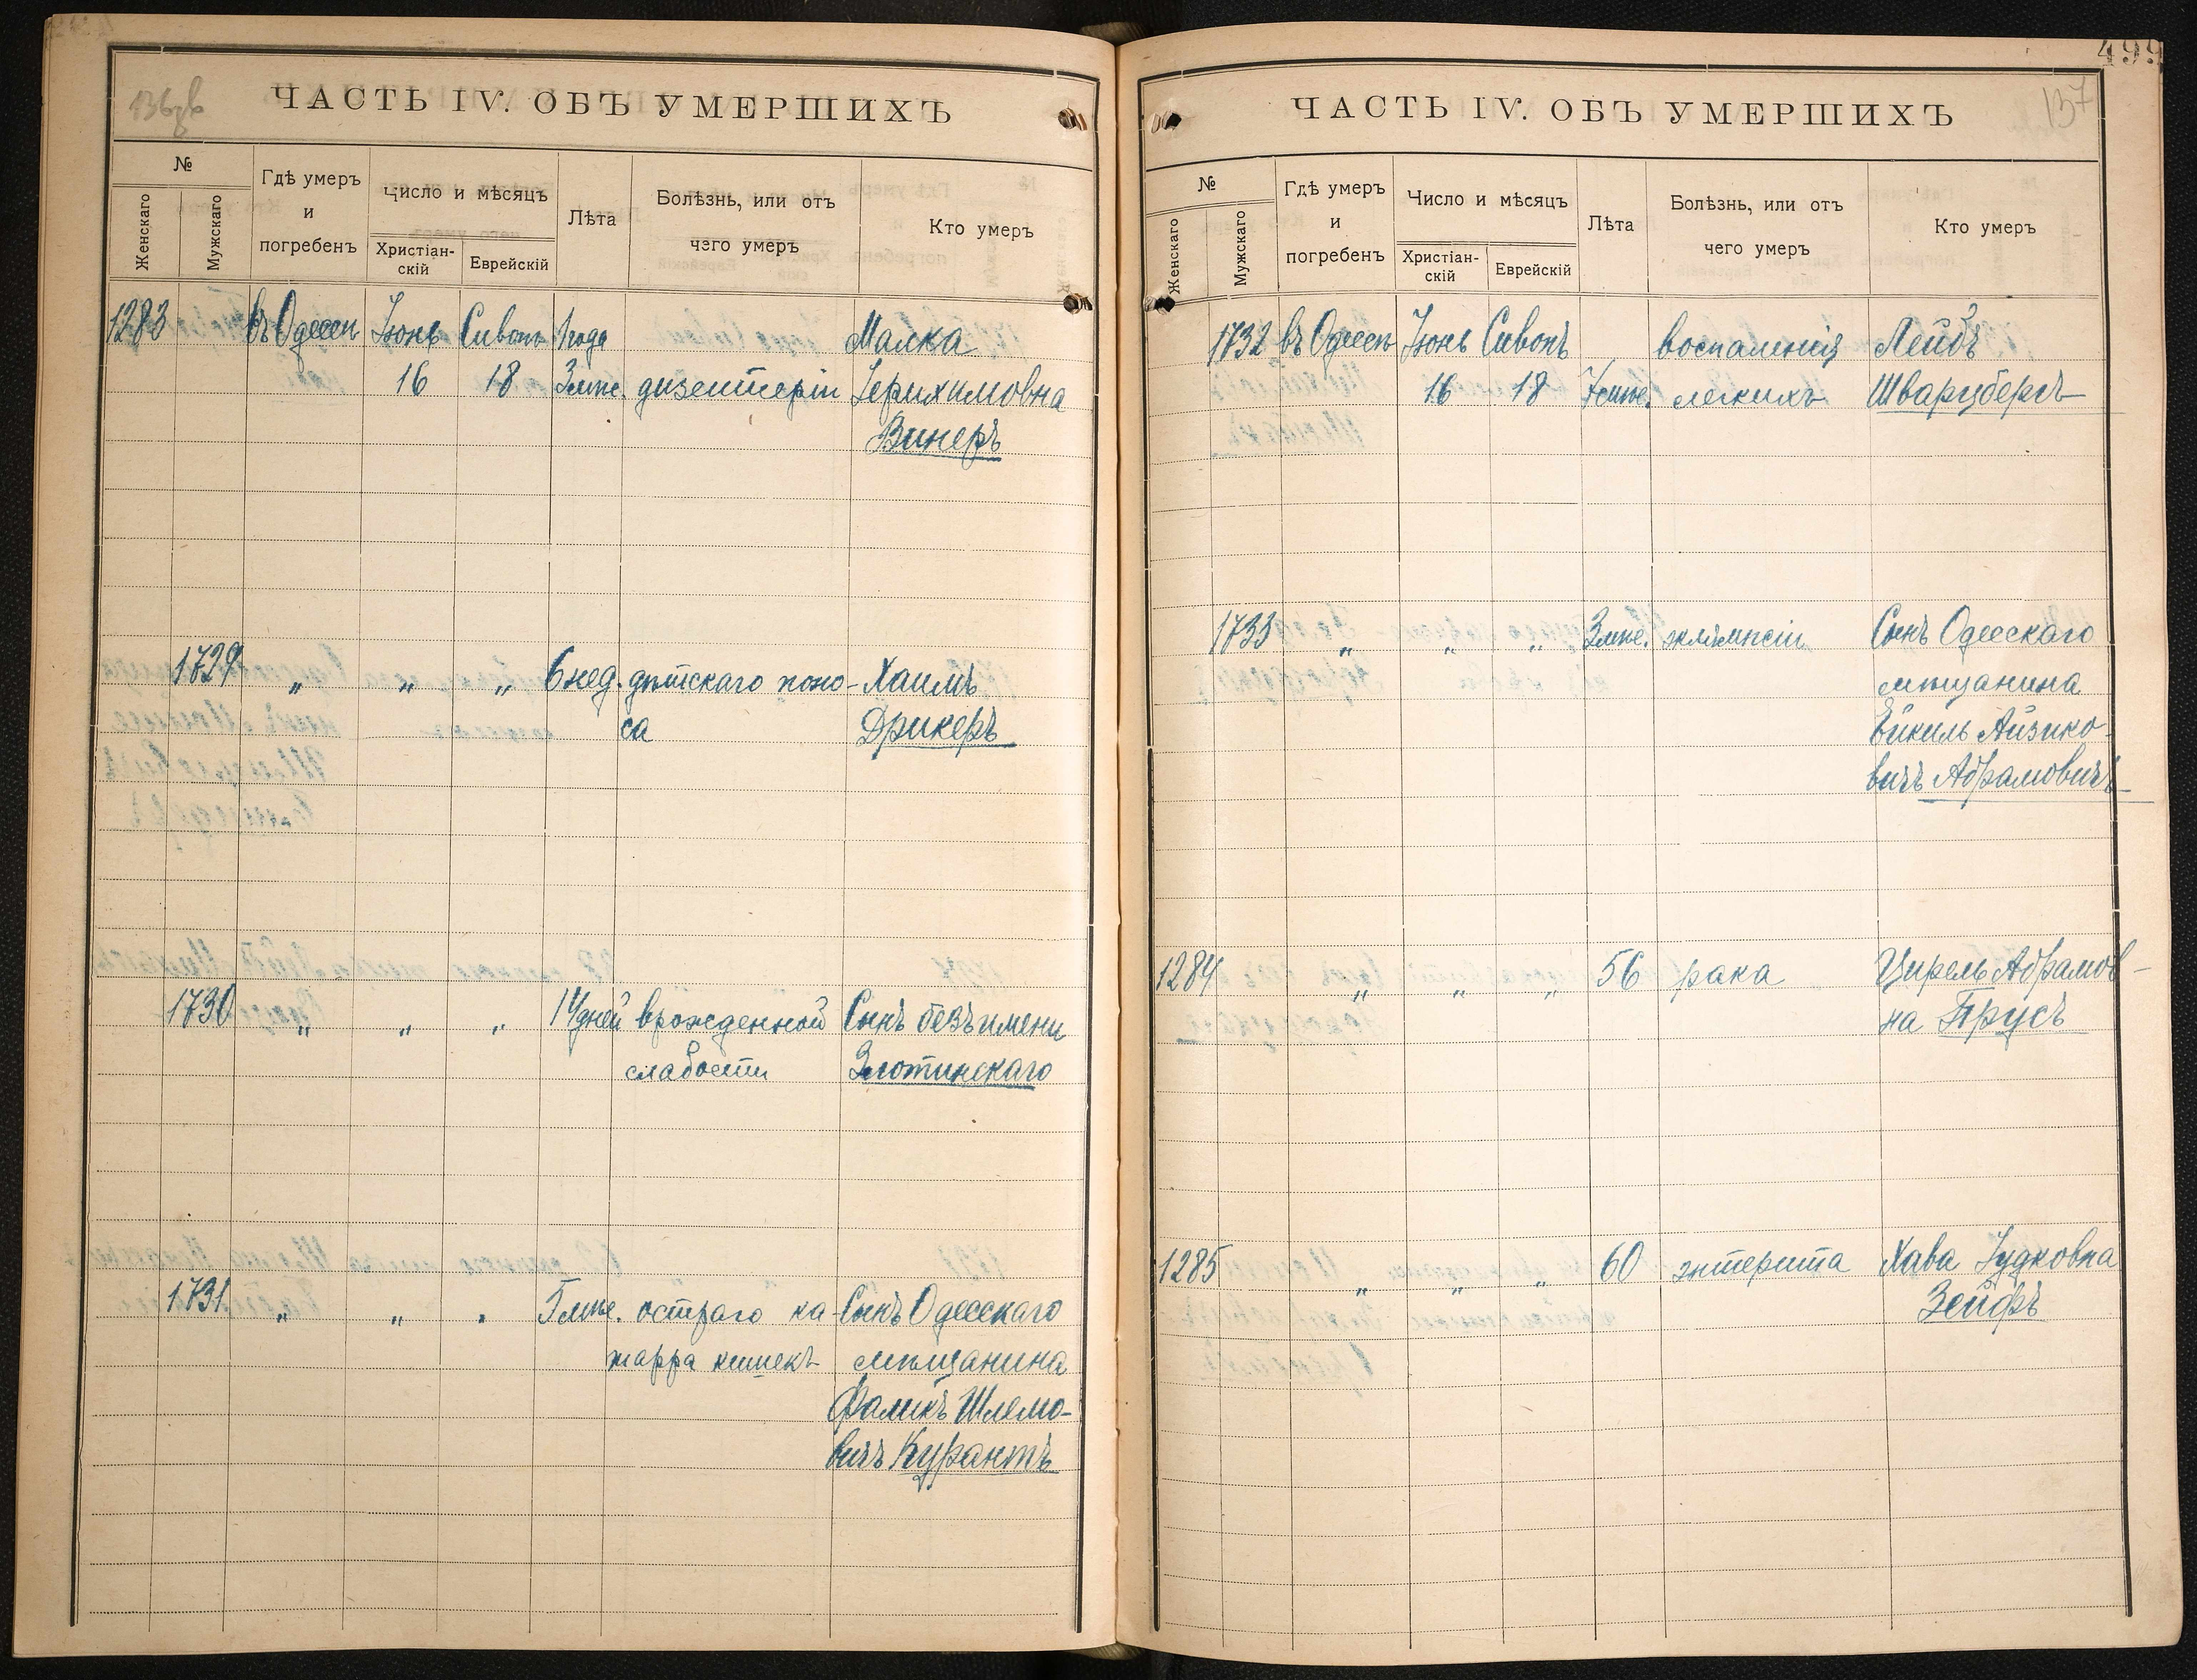 136зв
ЧАСТЬ IV. ОБЪ УМЕРШИХЪ
№
Женскаго
Мужскаго
Гдѣ умеръ
и
погребенъ
Число и мѣсяцъ
Христіан-
скій
Еврейскій
Лѣта
Болѣзнь, или отъ
чего умеръ
Кто умеръ
1283 въ Одессѣ Іюнь Сивонъ 1 года Малка
16 18 3 мѣс. дизентеріи Іерихимовна
Винеръ
1729 „ „ „ 6 нед. дѣтскаго поно- Хаимъ
са Дрикеръ
1730 „ „ „ 14 дней врожденной Сынъ безъ имени
слабости Злотинскаго
1731 „ „ „ 5 мѣс. остраго ка- Сынъ Одесскаго
тарра кишекъ мѣщанина
Фаликъ Шлемо-
вичъ Курантъ
499
137
ЧАСТЬ IV. ОБЪ УМЕРШИХЪ
№
Женскаго
Мужскаго
Гдѣ умеръ
и
погребенъ
Число и мѣсяцъ
Христіан-
скій
Еврейскій
Лѣта
Болѣзнь, или отъ
чего умеръ
Кто умеръ
1732 въ Одессѣ Іюнь Сивонъ воспаленія Лейбъ
16 18 7 мѣс. легкихъ Шварцбергъ
1733 „ „ „ 3 мѣс. эклямпсіи Сынъ Одесскаго
мѣщанина
Ейкиль Айзико-
вичъ Абрамовичъ
1284 „ „ „ 56 рака Цирель Абрамов-
на Прусъ
1285 „ „ „ 60 энтерита Хава Іудковна
Зейфъ